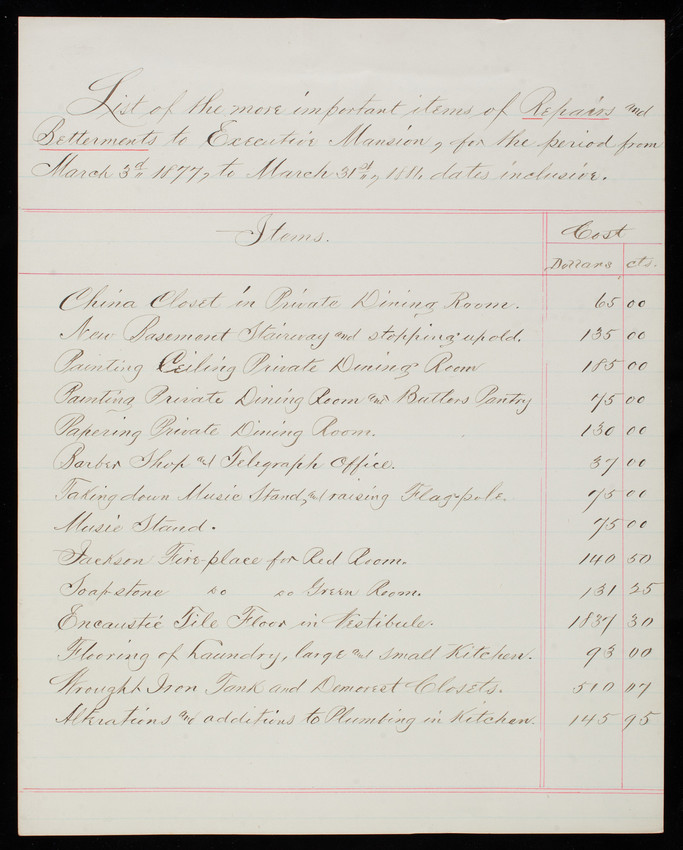 List of the more important items of Repairs and
Betterments to Executive Mansion, for the period from
March 3d 1877, to March 31st, 1881, dates inclusive.
Items. Cost
Dollars cts.
China Closet in Private Dining Room. 65 00
New Basement Stairway and stopping up old. 135 00
Painting Ceiling Private Dining Room 185 00
Painting Private Dining Room and Butlers Pantry 75 00
Papering Private Dining Room. 130 00
Barber Shop and Telegraph Office. 37 00
Taking down Music Stand, and raising Flag-pole. 75 00
Music Stand. 75 00
Jackson Fire-place for Red Room. 140 50
Soap-stone do do Green Room. 131 25
Encaustic Tile Floor in Vestibule. 1837 30
Flooring of Laundry, large and small Kitchen. 93 00
Wrought Iron Tank and Demorest Closets. 510 07
Alterations and additions to Plumbing in Kitchen. 145 95